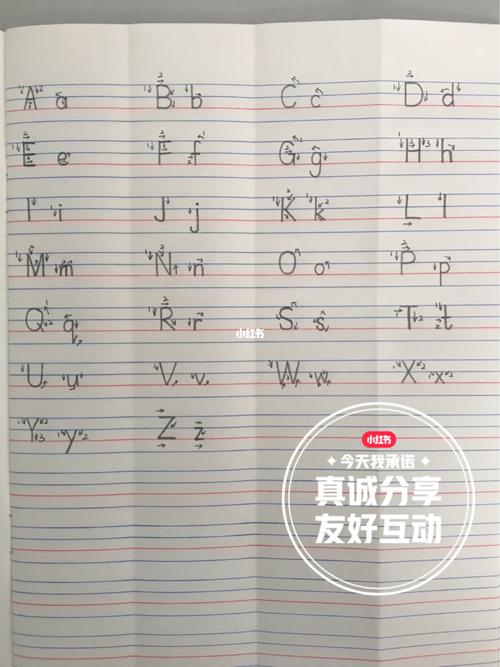 A a B b C c D d
E e F f G g H h
I i J j K k L l
M m N n O o P p
Q q R r S s T t
U u V v W w X x
Y y Z z
小红书
小红书
今天我承诺
真诚分享
友好互动